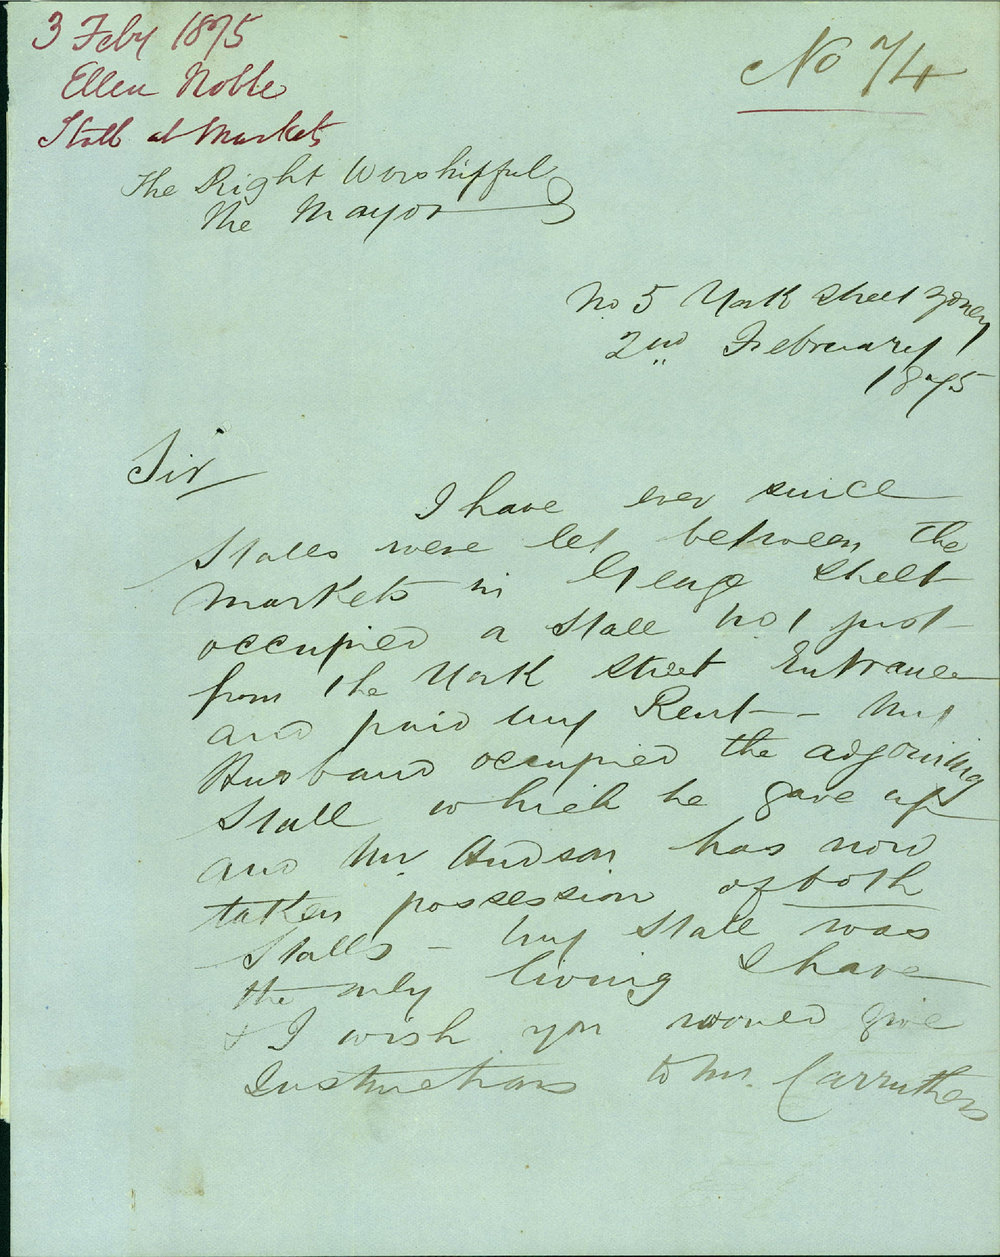 3 Feby 1875
Ellen Noble
Stall at Markets
No 74
The Right Worshipful
The Mayor
No 5 York Street Sydney
2nd February
1875
Sir
I have ever since
Stalls were let between the
Markets in George Street
occupied a Stall No 1 just
from the York Street Entrance
and paid my Rent – My
Husband occupied the adjoining
Stall which he gave up
and Mr Hudson has now
taken possession of both
Stalls – my Stall was
the only living I have
& I wish you would give
Instructions to Mr. Carruthers